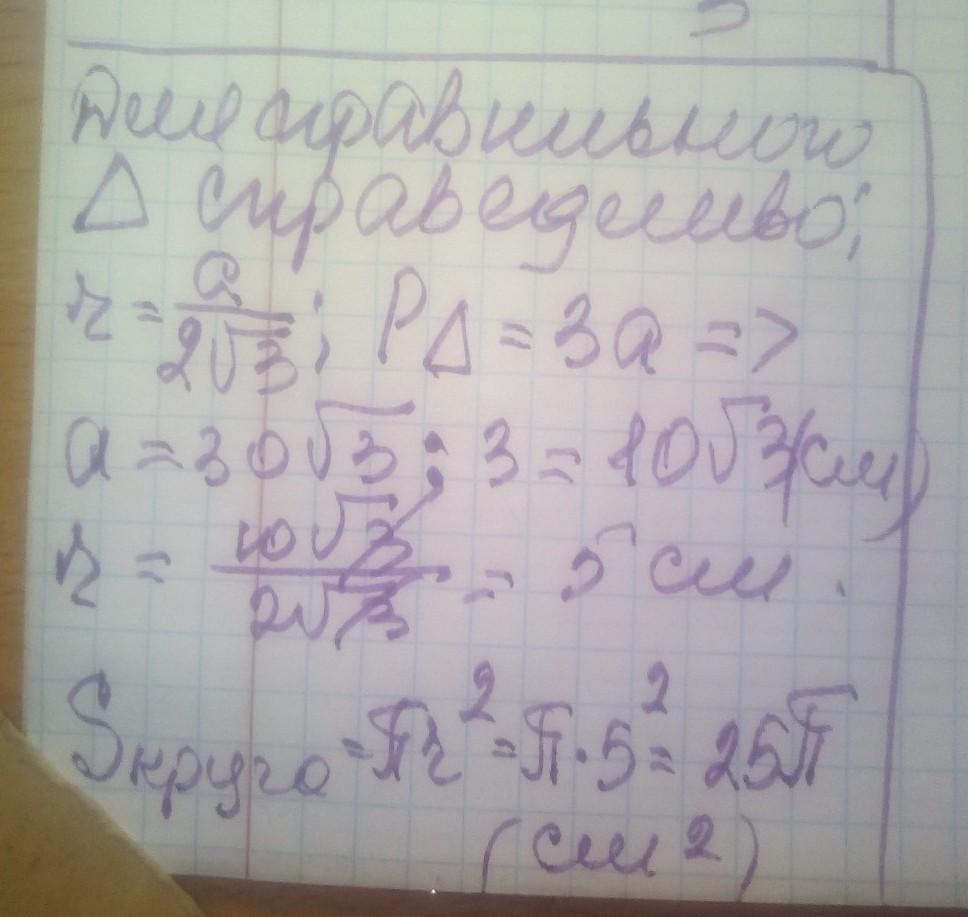 Для правильного
Δ справедливо;
r = a/(2√3); PΔ = 3a =>
a = 30√3 : 3 = 10√3 (см)
r = 10√3/(2√3) = 5 см.
Sкруга = πr² = π·5² = 25π
(см 2)